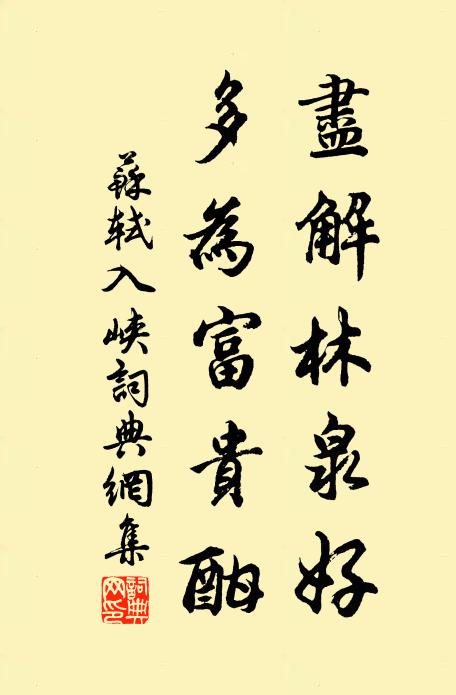 盡解林泉好
多為富貴酣
蘇軾入峽詞典網集
詞典網印